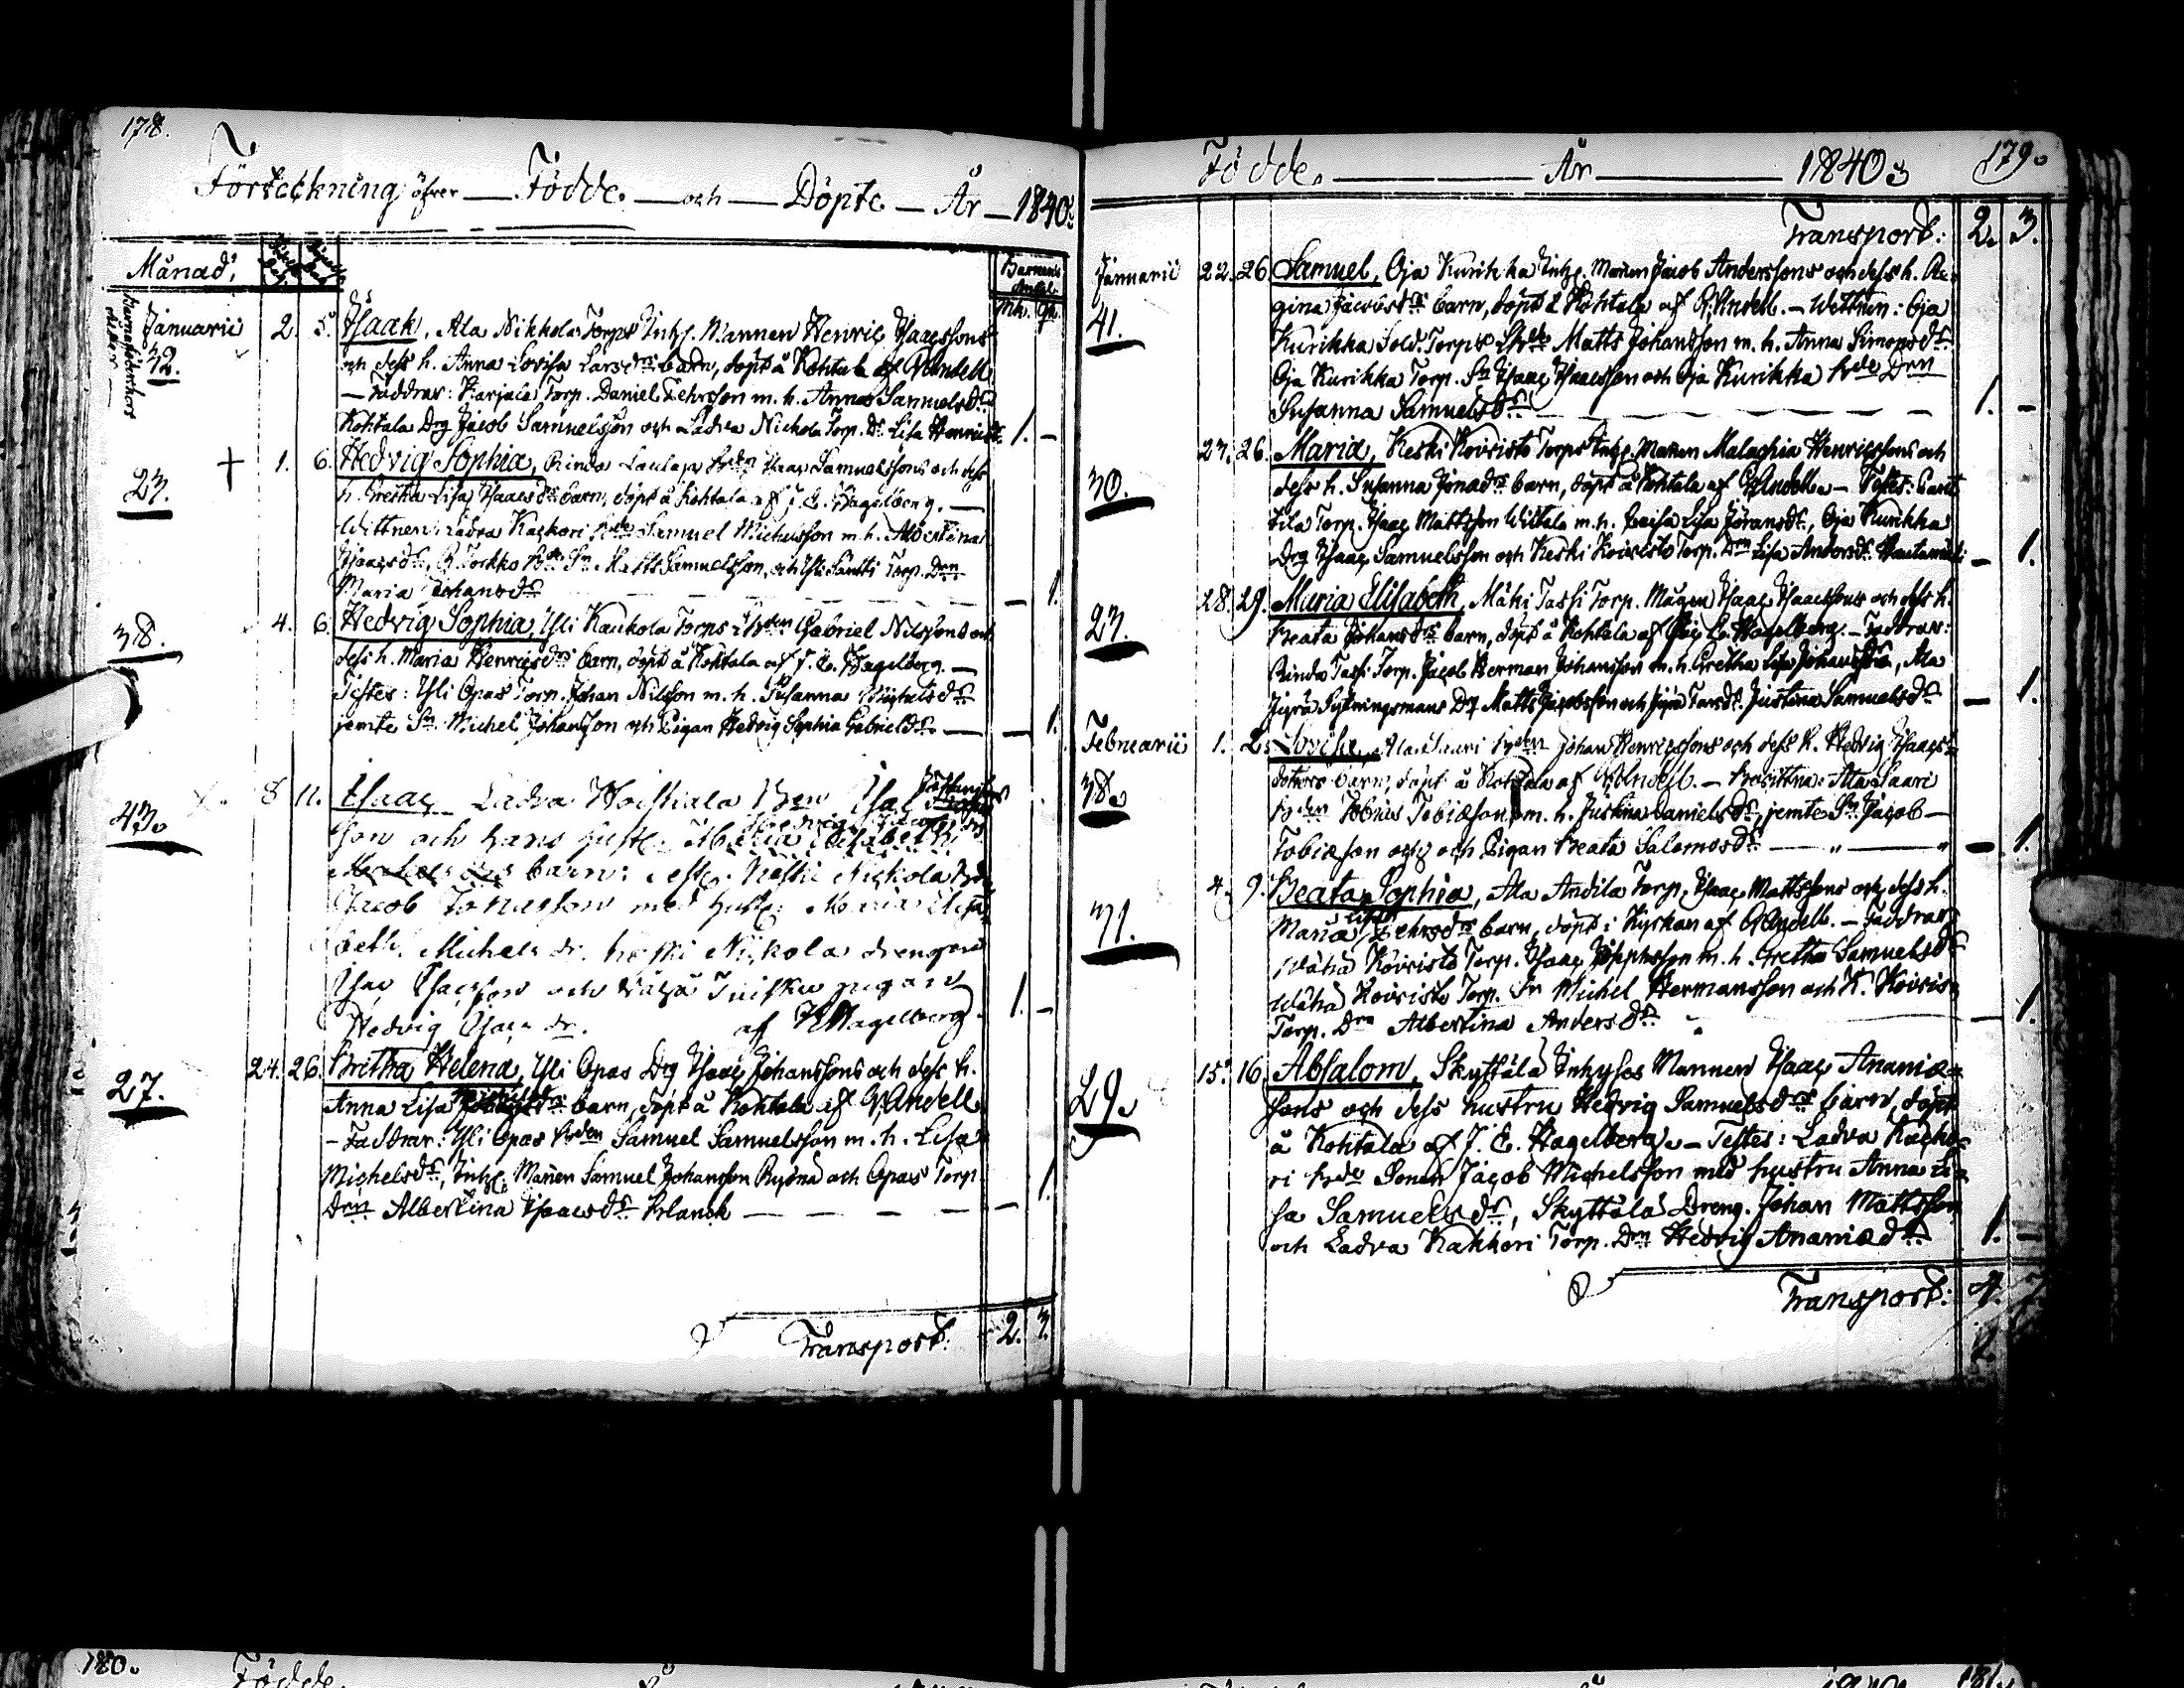 178.
Förteckning öfver — Födde — och — Döpte — År — 1840.
Månad.
Barnens Antal.
Mk. Qk.
Barnaföderskors ålder
Januarii 2. 5. Isaak, Ala Nikkola Torps Inh. Mannen Henric Isaacssons
32. och dess h. Anna Lovisa Larsdrs barn, döpt å Kohtala af G. Andell
— Faddrar: Karjala Torp. Daniel Jehrsson m. h. Anna Samuelsdr
Kohtala Drg Jacob Samuelsson och Ladva Nickola Torp. Dr Lisa Henricsdr. 1. —
† 1. 6. Hedvig Sophia, Rinda Isaac Samuelssons och dess
23. h. Gretha Lisa Isaacsdrs barn, döpt å Kohtala af J. E. Hagelberg. —
Wittnen: Ladva Kackori Samuel Michelsson m. h. Albertina
Isaacsdr, Sn Matts Samuelsson, och Yli Santti Torp. Drn
Maria Johansdr — 1.
4. 6. Hedvig Sophia, Yli Kaukola Torps Gabriel Nilssons och
38. dess h. Maria Henricsdrs barn, döpt å Kohtala af J. E. Hagelberg. —
Testes: Yli Opas Torp. Johan Nilsson m. h. Susanna Michelsdr
jemte Sn Michel Johansson och Pigan Hedvig Sophia Gabrielsdr. — — 1.
8 11. Isaac Ladva Isac
43. son och hans hust. Maria Elisabeth
barn: Test. Keski Nickola
Jacob Jonasson med hust: Maria Elisa
beth Michels dr. Keski Nickola drengen
Isac Isacsson och pigan
Hedvig Isacs dr. af J E Hagelberg 1. —
24. 26. Britha Helena, Yli Opas Drg Isaac Johanssons och dess h.
27. Anna Lisa barn, döpt å Kohtala af G. Andell
– Faddrar: Yli Opas Samuel Samuelsson m. h. Lisa
Michelsdr, Inh. Mannen Samuel Johansson och Opas Torp.
Drn Albertina Isaacsdr Blanck — — — — — 1.
Transport: 2. 3.
Födde. — År — 1840. 179.
Transport: 2. 3.
Januarii 22. 26 Samuel, Oja Kurikka Inh. Mannen Jacob Anderssons och dess h. Re-
gina Jacobsdrs barn, döpt å Kohtala af G. Andell. – Wittnen: Oja
41. Kurikka Sold. Torps Matts Johansson m. h. Anna Simonsdr
Oja Kurikka Torp. Sn Isaac Isaacsson och Oja Kurikka Drn
Susanna Samuelsdr — — — — 1. —
23. 26. Maria, Keski Koivisto Torps Inh. Mannen Malachia Henricssons och
30. dess h. Susanna Jonadrs barn, döpt å Kohtala af G. Andell. – Testes:
tila Torp. Isaac Mattsson Wiitala m. h. Caisa Lisa Göransdr, Oja Kurikka
Drg Isaac Samuelsson och Keski Koivisto Torp. Drn Lisa Andersdr — 1.
28. 29. Maria Elisabeth, Mäki Passi Torp. Mågen Isaac Isaacssons och dess h.
23. Beata Johansdrs barn, döpt å Kohtala af J. E. Hagelberg. – Faddrar:
Rinda Passi Torp. Jacob Herman Johansson m. h. Gretha Lisa Johansdr, Ala
Jyrä Sytningsmans Dr Matts Jacobsson och Jyrä Justina Samuelsdr — 1.
Februarii 1. 2. Lovisa, Ala Saari Johan Henricssons och dess h. Hedvig Isaacs-
dotters barn, döpt å Kohtala af G. Andell. – Ala Saari
38. Tobias Tobiasson m. h. Justina Danielsdr, jemte Sn Jacob —
Tobiasson och och Pigan Beata Salomosdr — " — " — 1.
4. 9. Beata Sophia, Ala Andila Torp. Isaac Mattssons och dess h.
31. Maria Lisa Jehrsdrs barn, döpt i Kyrkan af G. Andell. – Faddrar
Wähä Koivisto Torp. Isaac Josephsson m. h. Gretha Samuelsdr
Wähä Koivisto Torp. Sn Michel Hermansson och K. Koivisto
Torp. Drn Albertina Andersdr — 1.
15. 16. Absalom, Skyttälä Inhyses Mannen Isaac Ananiæ-
29. sons och dess hustru Hedvig Samuelsdrs barn, döpt
å Kohtala af J. E. Hagelberg. – Testes: Ladva Kacko-
ri Sonen Jacob Michelsson med hustru Anna Li-
sa Samuelsdr, Skyttälä Dreng. Johan Mattsson
och Ladva Kakkori Torp. Drn Hedvig Ananiædr. 1. —
Transport: 4. 7.
180. Födde. 181.